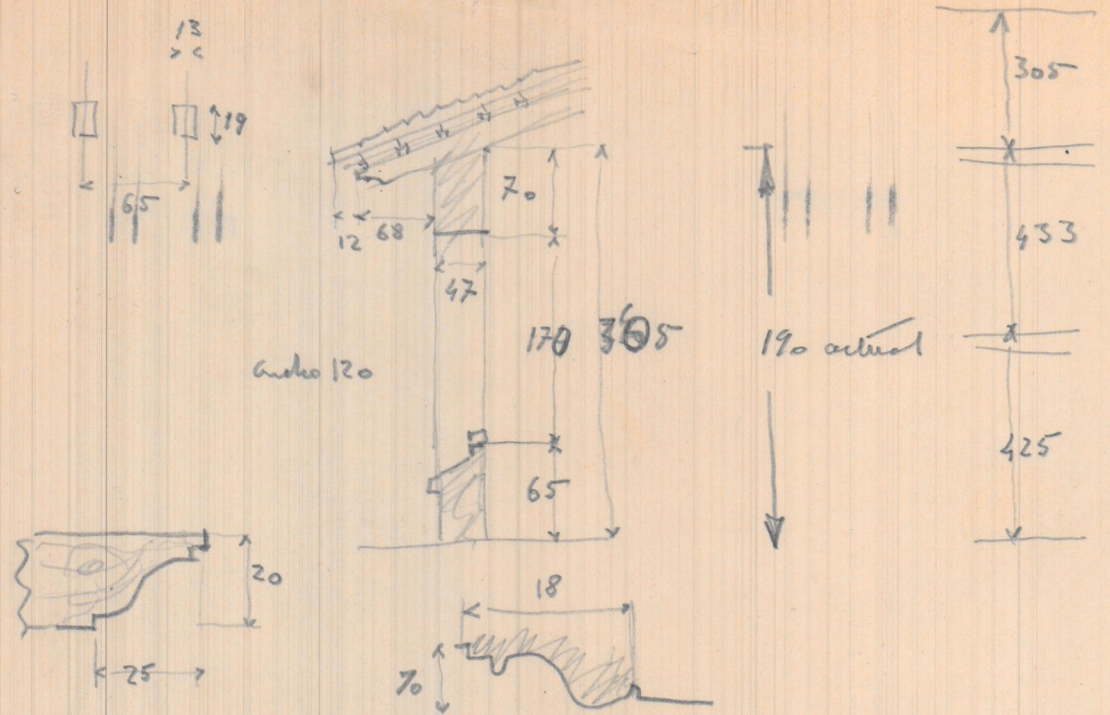 13
19
65
12 68
70
47
170
305
ancho 120
65
190 actual
305
433
425
20
25
18
70